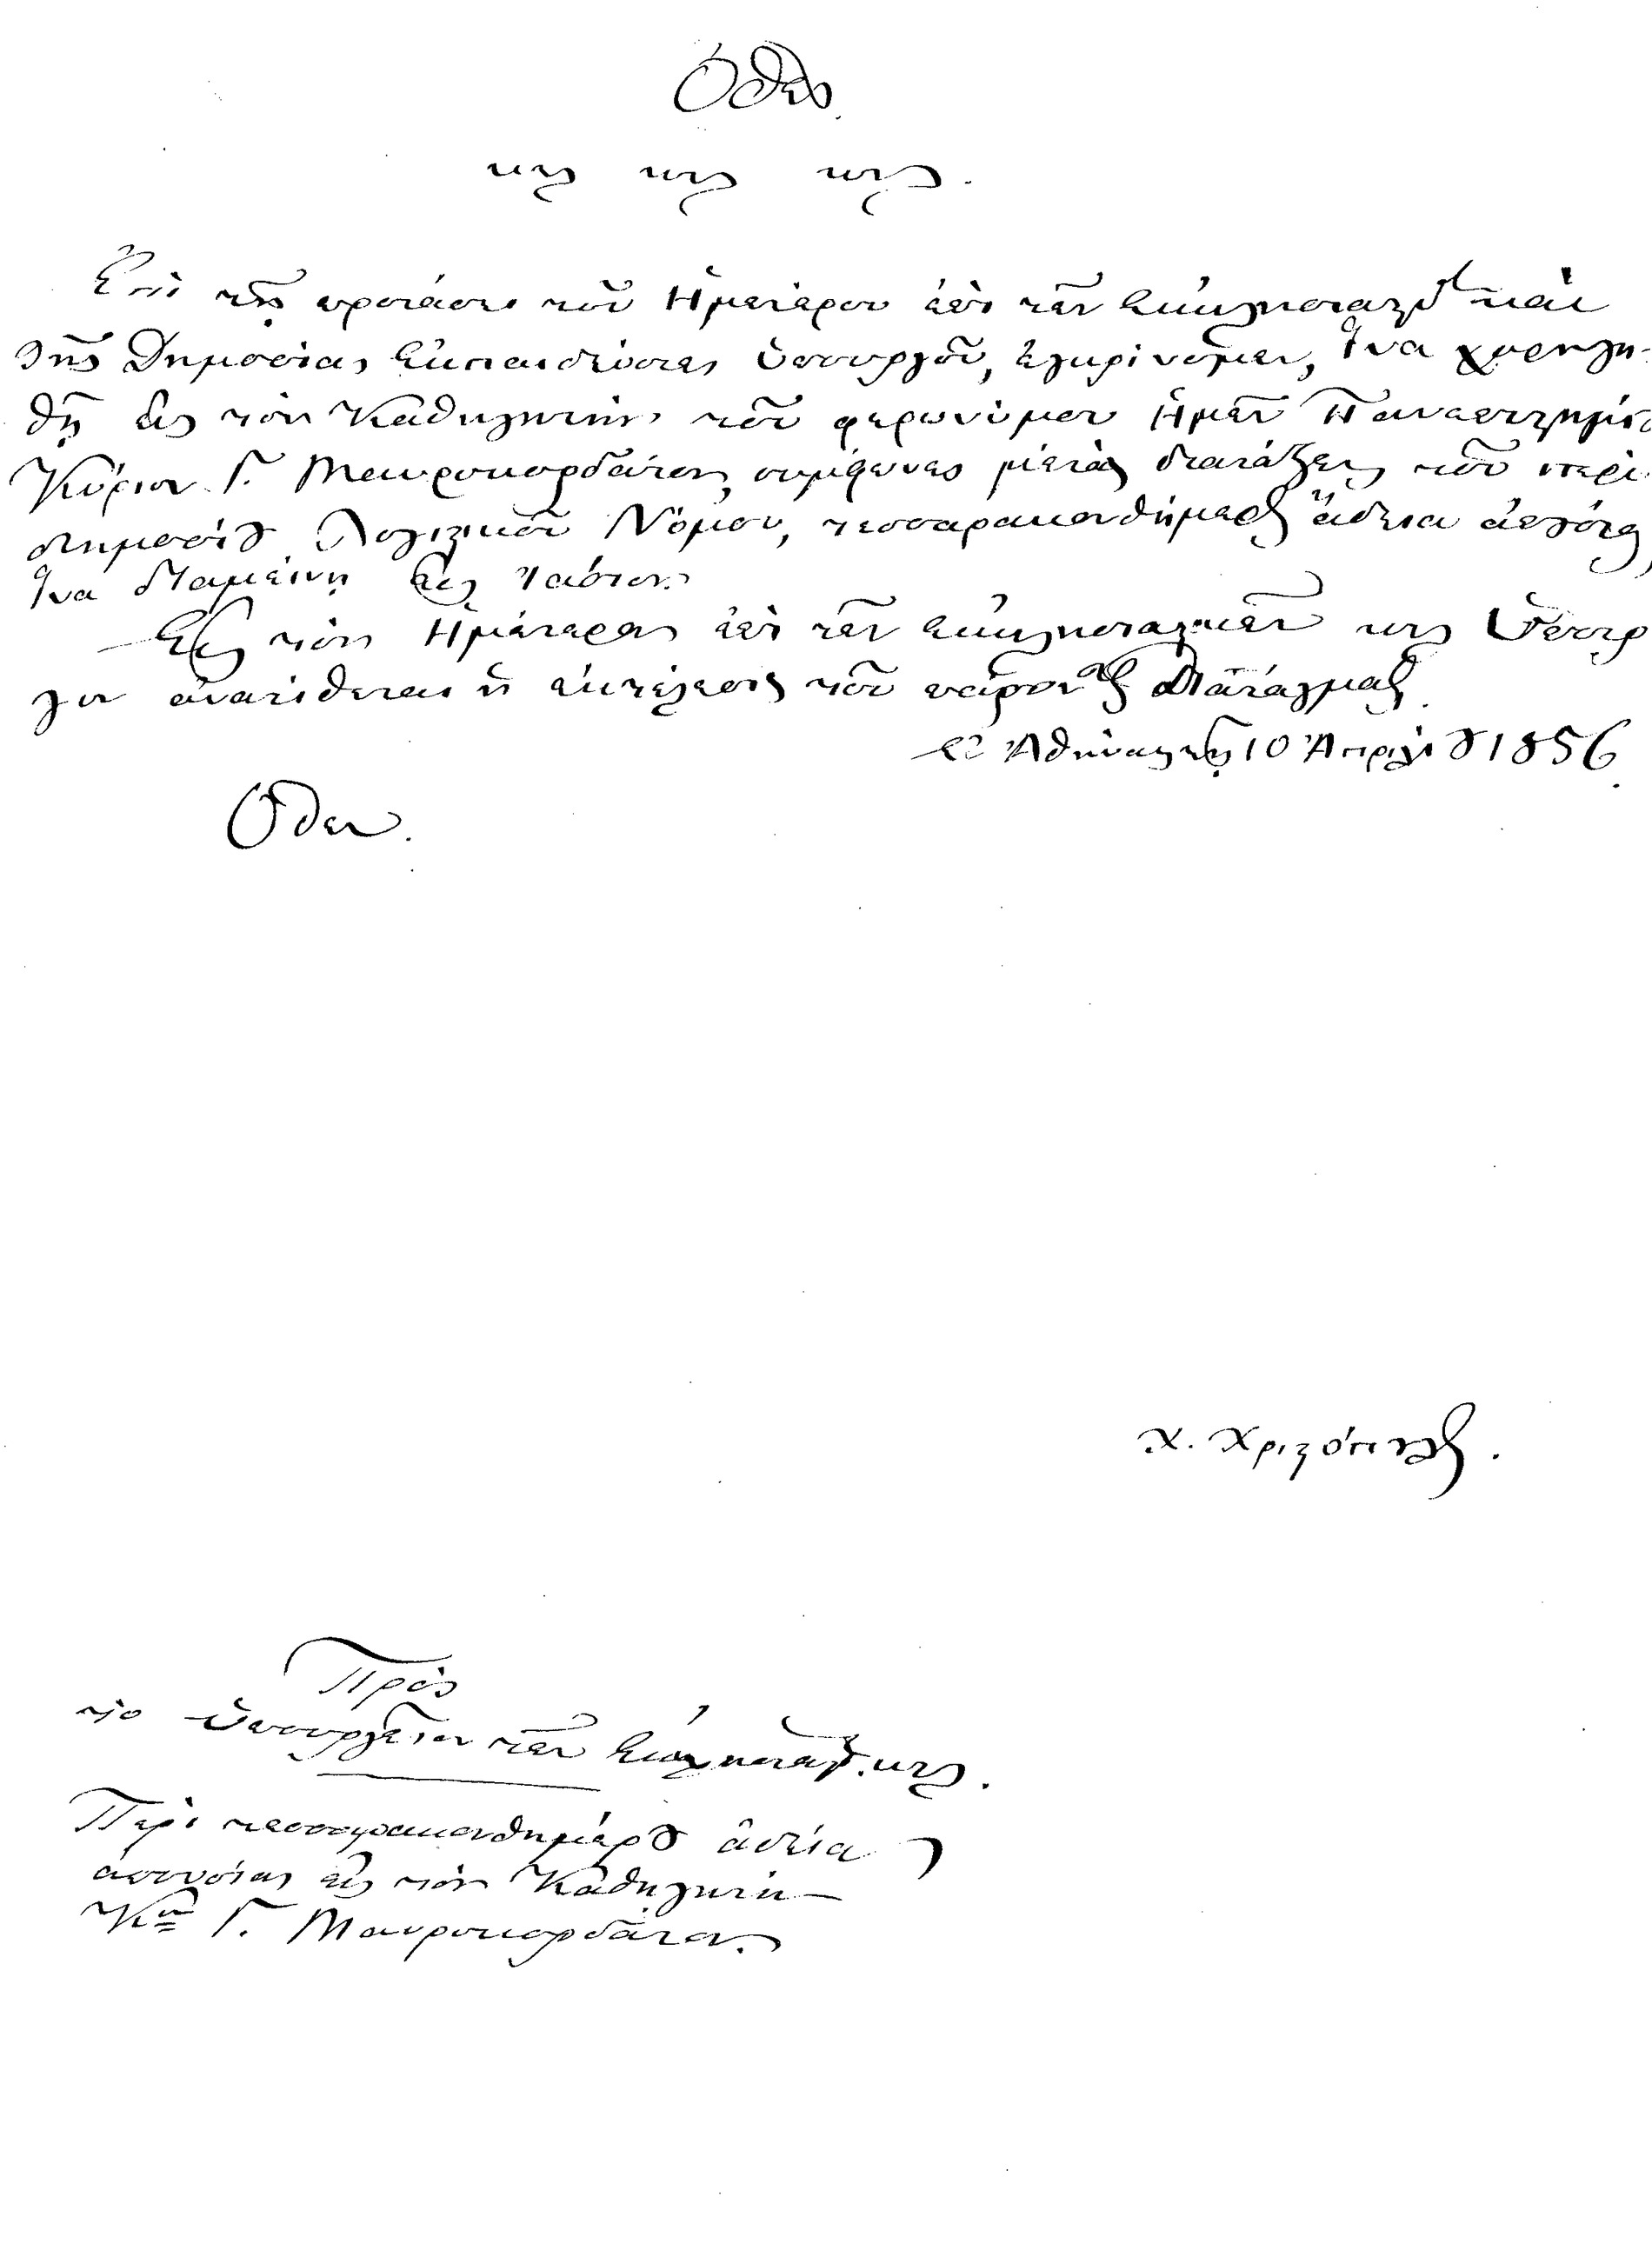 Ὄθων
κτλ κτλ κτλ.
Ἐπὶ τῇ προτάσει τοῦ Ἡμετέρου ἐπὶ τῶν Ἐκκλησιαστ. καὶ
τῆς Δημοσίας Ἐκπαιδεύσεως Ὑπουργοῦ, ἐγκρίνομεν, ἵνα χορηγη-
θῇ εἰς τὸν Καθηγητὴν τοῦ φερωνύμου Ἡμῶν Πανεπιστημίου
Κύριον Γ. Μαυροκορδάτον, συμφώνως μὲ τὰς διατάξεις τοῦ περὶ
δημοσίου Λογιστικοῦ Νόμου, τεσσαρακονθήμερος ἄδεια ἀπουσίας
ἵνα διαμείνῃ εἰς
Εἰς τὸν Ἡμέτερον ἐπὶ τῶν Ἐκκλησιαστικῶν κτλ Ὑπουρ
γὸν ἀνατίθεται ἡ ἐκτέλεσις τοῦ παρόντος Διατάγματος.
Ἐν Ἀθήναις τῇ 10 Ἀπριλίου 1856.
Ὄθων.
Χ. Χριστόπουλος.
Πρὸς
τὸ Ὑπουργεῖον τῶν Ἐκκλησιαστ. κτλ.
Περὶ τεσσαρακονθημέρου ἀδείας
ἀπουσίας εἰς τὸν Καθηγητὴν
Κον Γ. Μαυροκορδάτον.